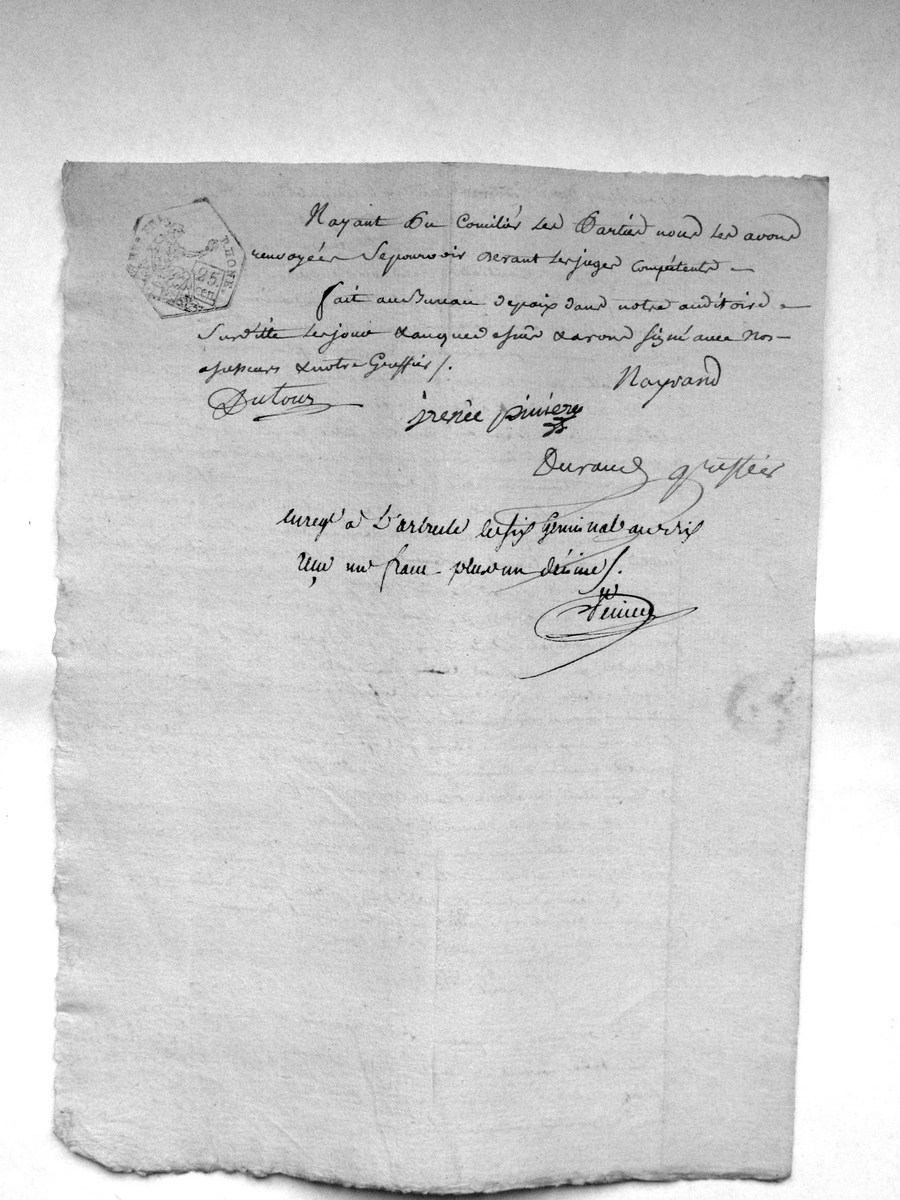 RHONE.
25.
CEN.
Nayant Pu Concilier Les Parties nous Les avons
renvoyées Sepourvoir devant Les juges Compétents —
fait au Bureau de paix dans notre auditoire —
Susditte Les jour & an que dessus & avons Signé avec Nos —
assesseurs & notre Greffier /.
Nayrand
Dutour
irenée
Durand greffier
enregé a L'arbresle le six Germinal an dix
reçu un franc plus un décime /.